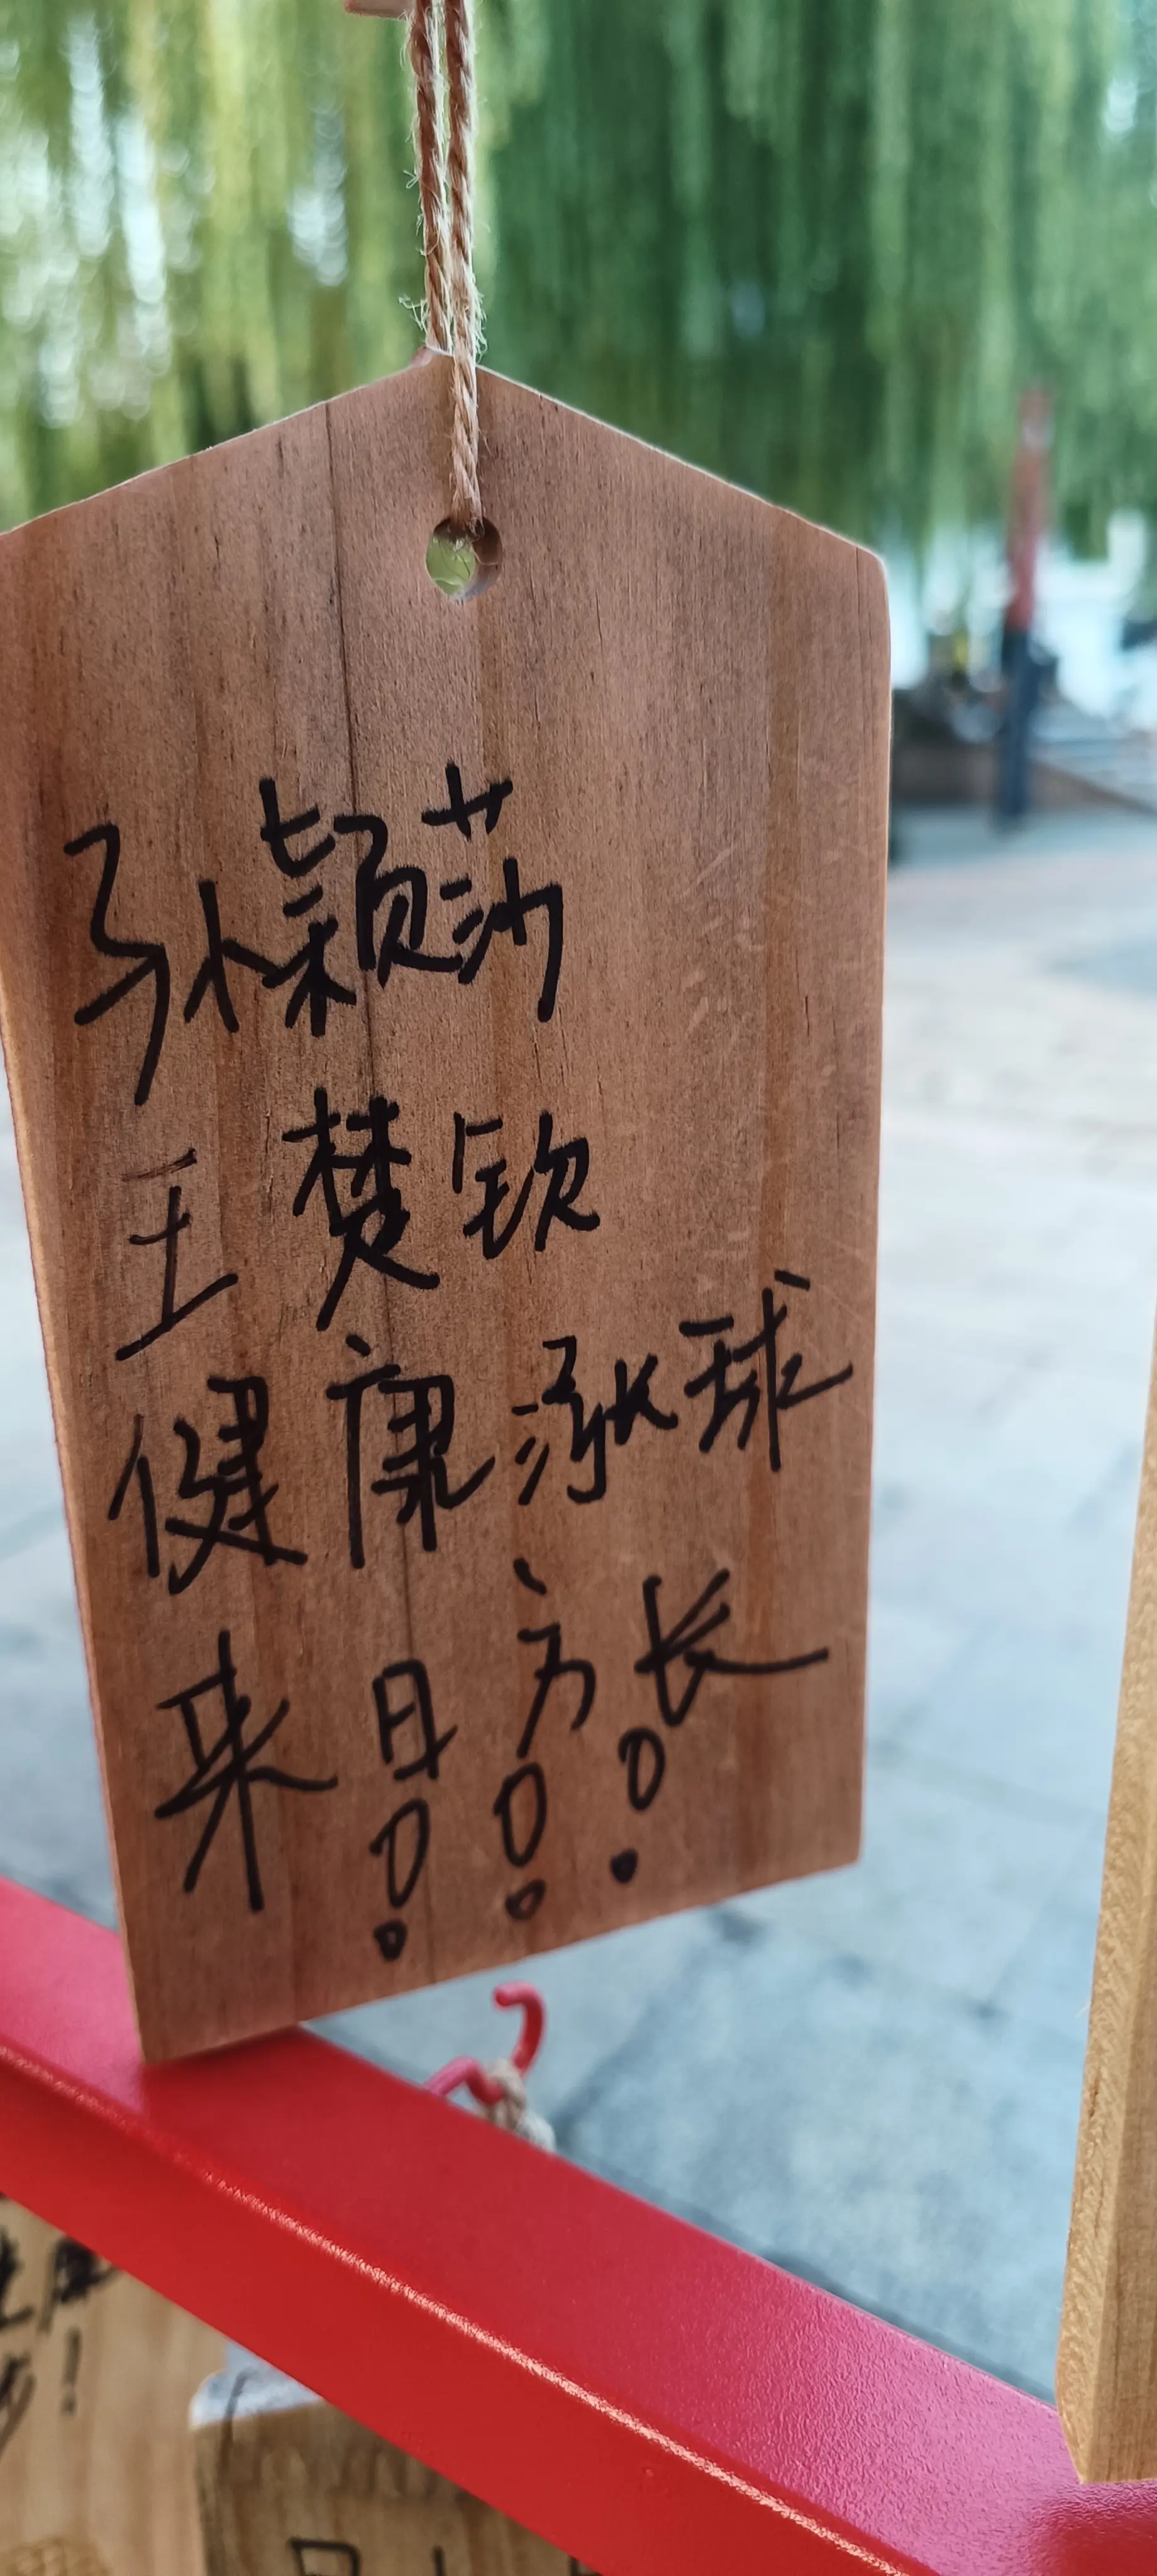 孙颖莎
王楚钦
健康涨球
来日方长
!!!